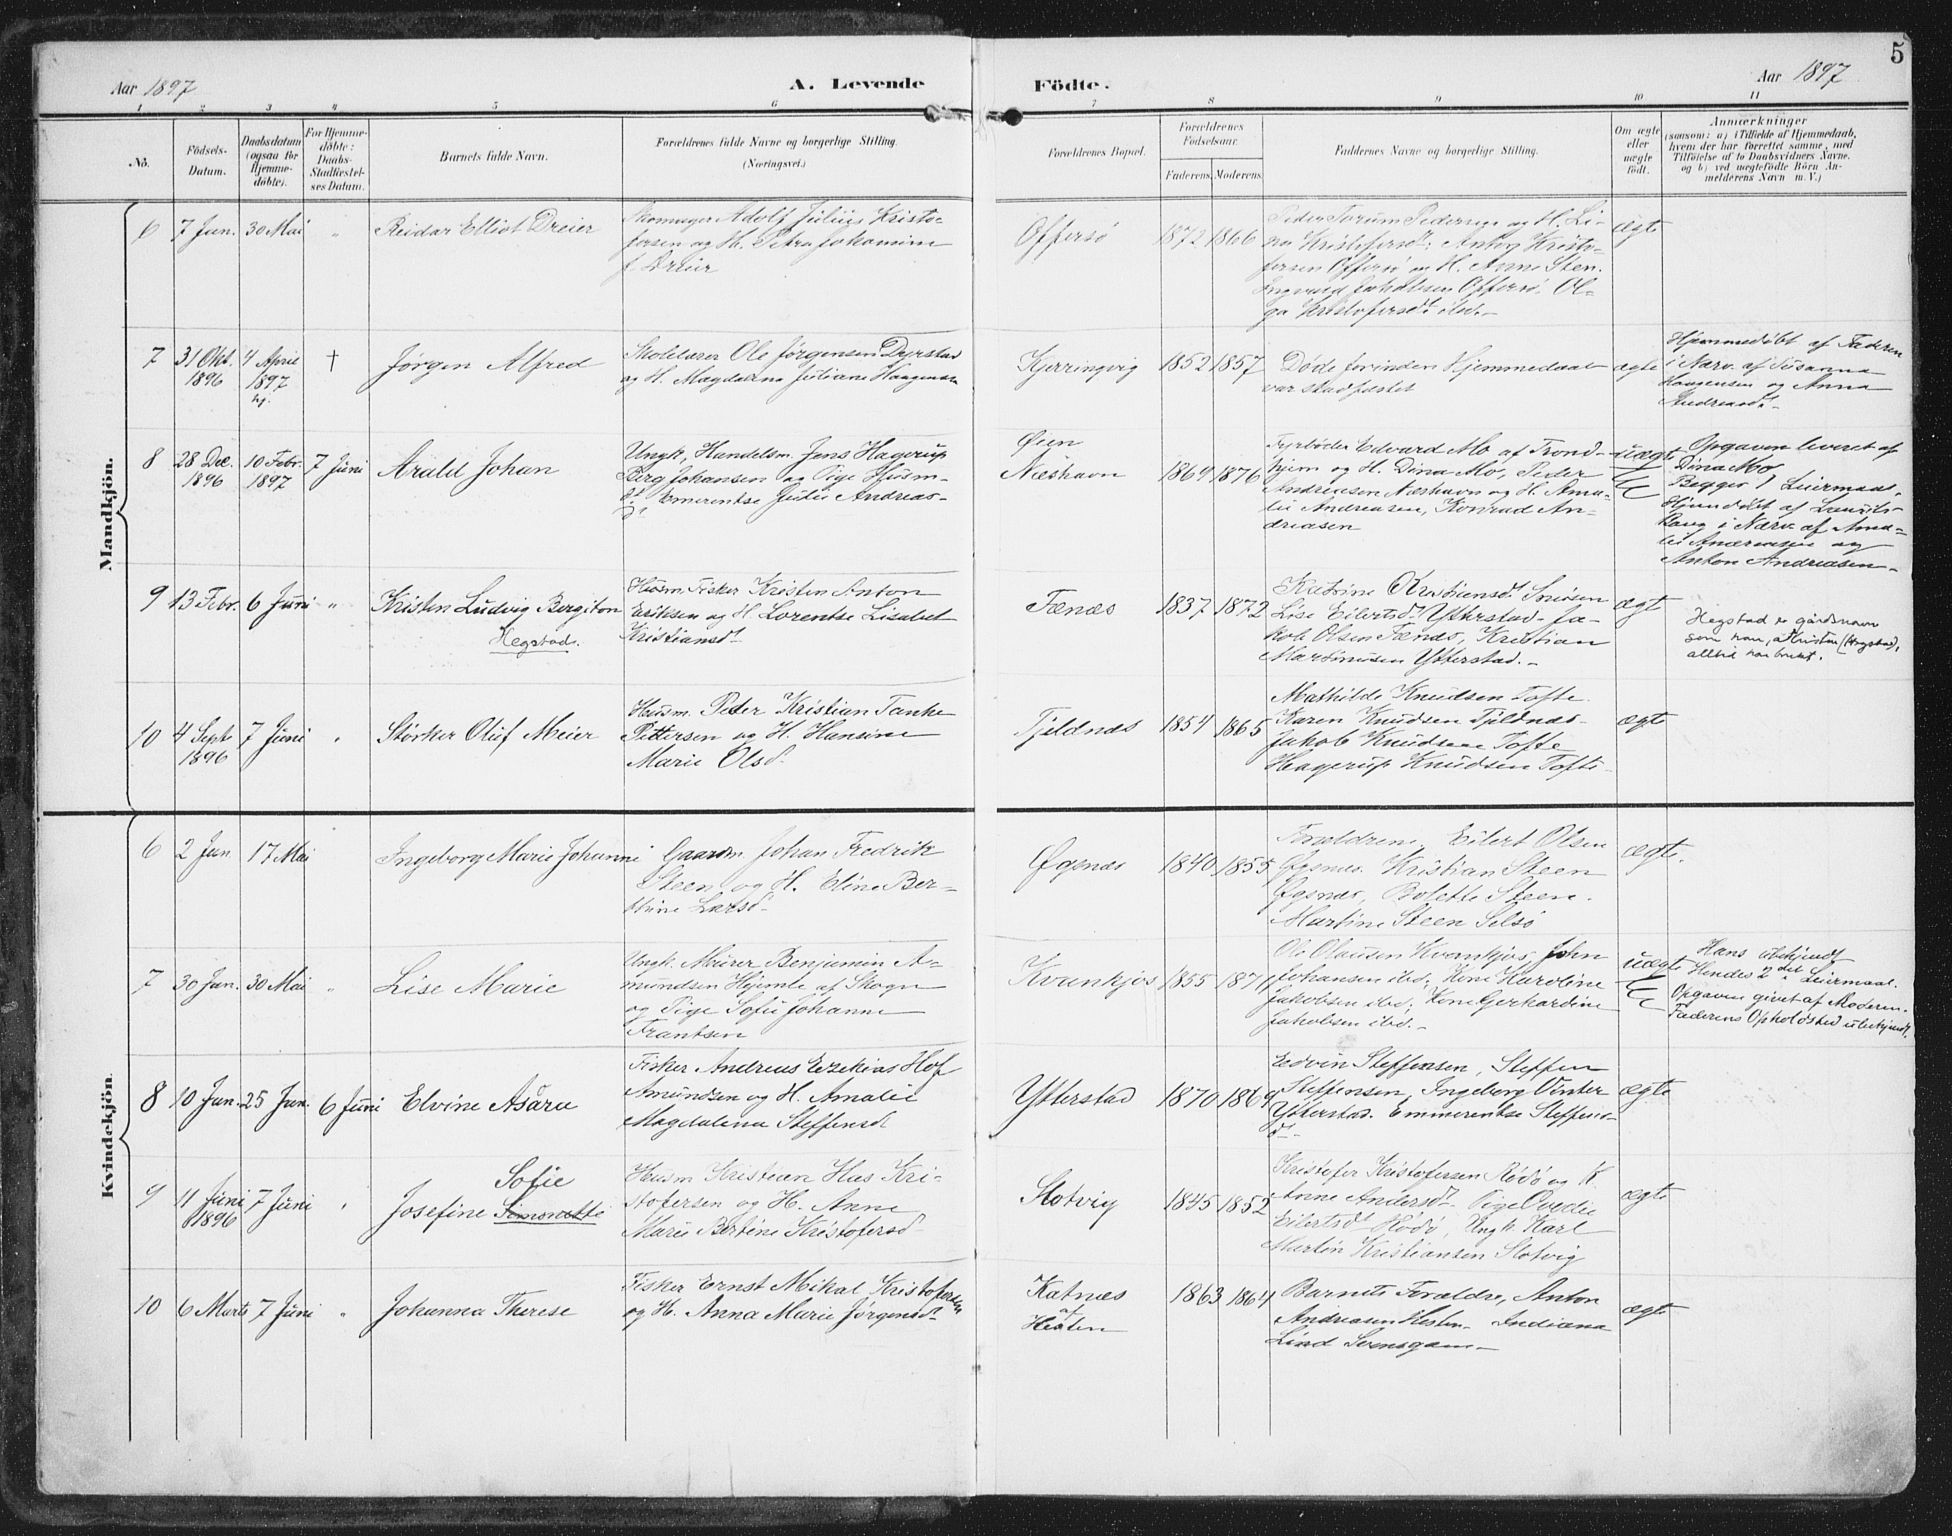 5
Aar 1897
A. Levende
Födte.
Aar 1897
1 2 3 4 5 6 7 8 9 10 11
No.
Födsels-
Datum.
Daabsdatum
(ogsaa for
Hjemme-
döbte).
For Hjemme-
döbte:
Daabs-
Stadfæstel-
ses Datum.
Barnets fulde Navn.
Forældrenes fulde Navne og borgerlige Stilling.
(Næringsvei.)
Forældrenes Bopæl.
Forældrenes
Födselsaar.
Faderens. Moderens.
Faddernes Navne og borgerlige Stilling.
Om ægte
eller
uægte
födt.
Anmærkninger
(saasom: a) i Tilfælde af Hjemmedaab,
hvem der har forrettet samme, med
Tilföielse af to Daabsvidners Navne.
og b) ved uægtefödte Börn An-
melderens Navn m. V.)
Mandkjön.
6
7 Jan.
30 Mai
"
Reidar Elliot Dreier
Skomager Adolf Julius Kristo-
fersen og H. Petra Johanmine
f. Dreier
Offersö
1872
1866
Peder Torum Pedersen og H. Li-
na Kristofersdt; Anton Kristo-
fersen Offersö og H. Anne Sten.
Ingvard Jakobsen Offersö. Ol-
ga Kristofersdt ibid.-
ægte
7
31 Okt.
1896
4 April
1897
hj.
†
Jörgen Alfred
Skolelærer Ole Jörgensen Dyrstad
og H. Magdalena Juliane Haagensen
Kjerringvig
1852
1857
Döde forinden Hjemmedaab
var stadfæstet
ægte
Hjemmedöbt af Faderen
i Nærv. af Susanna
Haagensen og Anna
Andreasdt.-
8
28 Dec.
1896
10 Febr.
1897
7 Juni
Arald Johan
Ungk, Handelsm. Jens Hagerup
Berg Johansen og Pige Husm-
dt Emerentse Julie Andreas-
dt
Öien
Næshavn
1864
1876
Fyrböder Edvard Mo af Trond-
hjem og H. Dina Mo, Peder
Andreasen Næshavn og H. Ama-
lie Andreasen, Konrad An-
dreasen
uægte
Opgaven leveret af
Dina Mo
Begges 1 Leiermaal.
Hjemdöbt af
i Nærv. af Ama-
lie Andreasen og
Anton Andreasen-
9
13 Febr.
6 Juni
"
Kristen Ludvig Bergiton
Hegstad.
Husm. Fisker Kristen Anton
Eriksen og H. Lorentse Lisabet
Kristiansdt
Tænæs
1837
1872
Katrine Kristiensdt
Lise Eilertsdt Ytterstad- Ja-
kob Olsen Tænæs, Kristian
Martinusen Ytterstad.-
ægt
Hegstad er gårdsnavn
som han, Kristen (Hegstad),
alltid har brukt.
10
4 Sept
1896
7 Juni
"
Störker Oluf Meier
Husm. Peder Kristian Tanke
Pettersen og H. Hansine
Marie Olsd.
Tjeldnæs
1854
1865
Mathilde Knudsen Tofte.
Karen Knudsen Tjeldnæs-
Jakob Knudsen Tofte
Hagerup Knudsen Tofte-
ægte
Kvindekjön.
6
2 Jan
17 Mai
Ingeborg Marie Johanne
Gaardm. Johan Fredrik
Steen og H. Eline Ber-
thine Larsd-
Øgsnæs
1840
1855
Forældrene, Eilert Olsen
Øgsnæs. Kristian Steen
Øgsnæs, Bolette Steen.
Martine Steen Selsö
ægte.
7
30 Jan.
30 Mai
"
Lise Marie
Ungk. Murer Benjamin A-
mundsen Hjemle af Skogn
og Pige Sofie Johanne
Frantsen
Kvankjos
1855
1871
Ole Olausen Kvankjos, John
Johansen ibd, Kine Karoline
Jakobsen ibd, Kine Gerhardine
Jakobsen ibd.-
uægte
Hans ubekjendt
Hendes 2det Leiermaal.
Opgaven givet af Moderen.
Faderens Opholdsted ubekjendt.
8
10 Jan.
25 Jan.
6 Juni
Elvine Asára
Fisker Andreas Ezekias Hof
Amundsen og H. Amalie
Magdalena Steffensdt
Ytterstad
1870
1869
Edvin Steffensen, Steffen
Steffensen, Ingeborg Vinter
Ytterstad. Emmerentse Steffens-
dt-
ægte
9
11 Juni
1896
7 Juni
"
Sofie
Josefine Simonette
Husm Kristian Has Kri-
stofersen og H. Anne
Marie Bertine Kristofersd-
Slotvig
1845
1852
Kristofer Kristofersen Rödö og K.
Anne Andersdt- Pige Ovedie
Eilertsdt Rödö, Ungk Karl
Martin Kristiansen Slotvig
ægte
10
6 Marts
7 Juni
"
Johanna Therese
Fisker Ernst Mikal Kristofersen
og H. Anna Marie Jörgensdt
Katnæs
af
Hesten
1863
1864
Barnets Forældre, Anton
Andreasen Hesten- Indiana
Lind Svensgam-
ægte